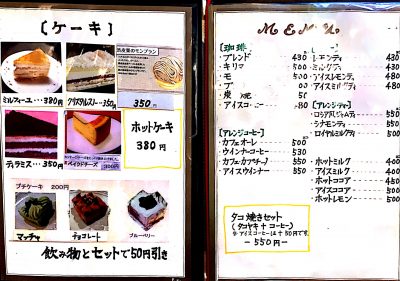 [ケーキ]
ミルフィーユ・・・380円
クリスタルストー・350円
350円
ティラミス・・・350円
ベイクドチーズ 300円
ホットケーキ
380円
プチケーキ 200円
マッチャ
チョコレート
ブルーベリー
飲み物とセットで50円引き
MENU
[珈琲
ブレンド 430
キリマ 500
モ 500
ブ
炭焼
アイスコ
[アレンジコーヒー]
カフェオーレ 500
ウインナーコーヒー 530
カフェカプチーノ 550
アイスウインナー 550
レモンティ 430
ミルクティ 430
アイスレモンティ 480
アイスミルクティ 480
[アレンジティー]
ロシアンティー 550
シナモンティ 550
ロイヤルミルクティ 500
ホットミルク 400
アイスミルク 400
ホットココア 450
アイスココア 500
ホットレモン 500
タコ焼きセット
(タコヤキ+コーヒー)
※アイスコーヒーは+50円です。
-550円-